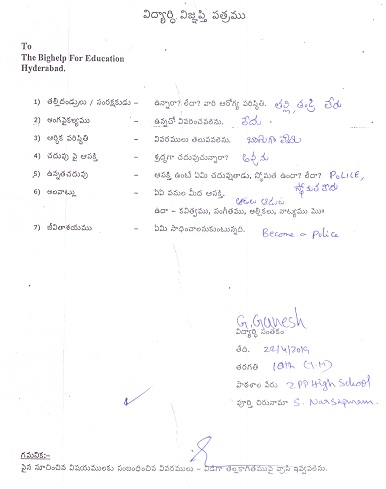 విద్యార్థి విజ్ఞప్తి పత్రము
To
The Bighelp For Education
Hyderabad.
1) తల్లిదండ్రులు / సంరక్షకుడు - ఉన్నారా? లేదా? వారి ఆరోగ్య పరిస్థితి. తల్లి, తండ్రి లేరు
2) అంగవైకల్యము - ఉన్నదో వివరించవలెను. లేదు
3) ఆర్థిక పరిస్థితి - వివరములు తెలుపవలెను. బాగాలేదు
4) చదువు పై ఆసక్తి - శ్రద్ధగా చదువుచున్నారా?
5) ఉన్నతచదువు - ఆసక్తి ఉంటే ఏమి చదువుతాడు, స్థోమత ఉందా? లేదా? POLICE,
స్థోమత లేదు
6) అలవాట్లు - ఏఏ పనుల మీద ఆసక్తి.
ఆటలు ఆడుట
ఉదా - కవిత్వము, సంగీతము, అల్లికలు, నాట్యము మొ॥
7) జీవితాశయము - ఏమి సాధించాలనుకుంటున్నది. Become a Police
G. Ganesh
విద్యార్థి సంతకం
తేది. 22/4/2019
తరగతి 10th (T.M)
పాఠశాల పేరు ZPP High School
పూర్తి చిరునామా S. Narsapuram.
గమనిక:-
పైన సూచించిన విషయములకు సంబంధించిన వివరములు - విడిగా తెల్లకాగితముపై వ్రాసి ఇవ్వవలెను.